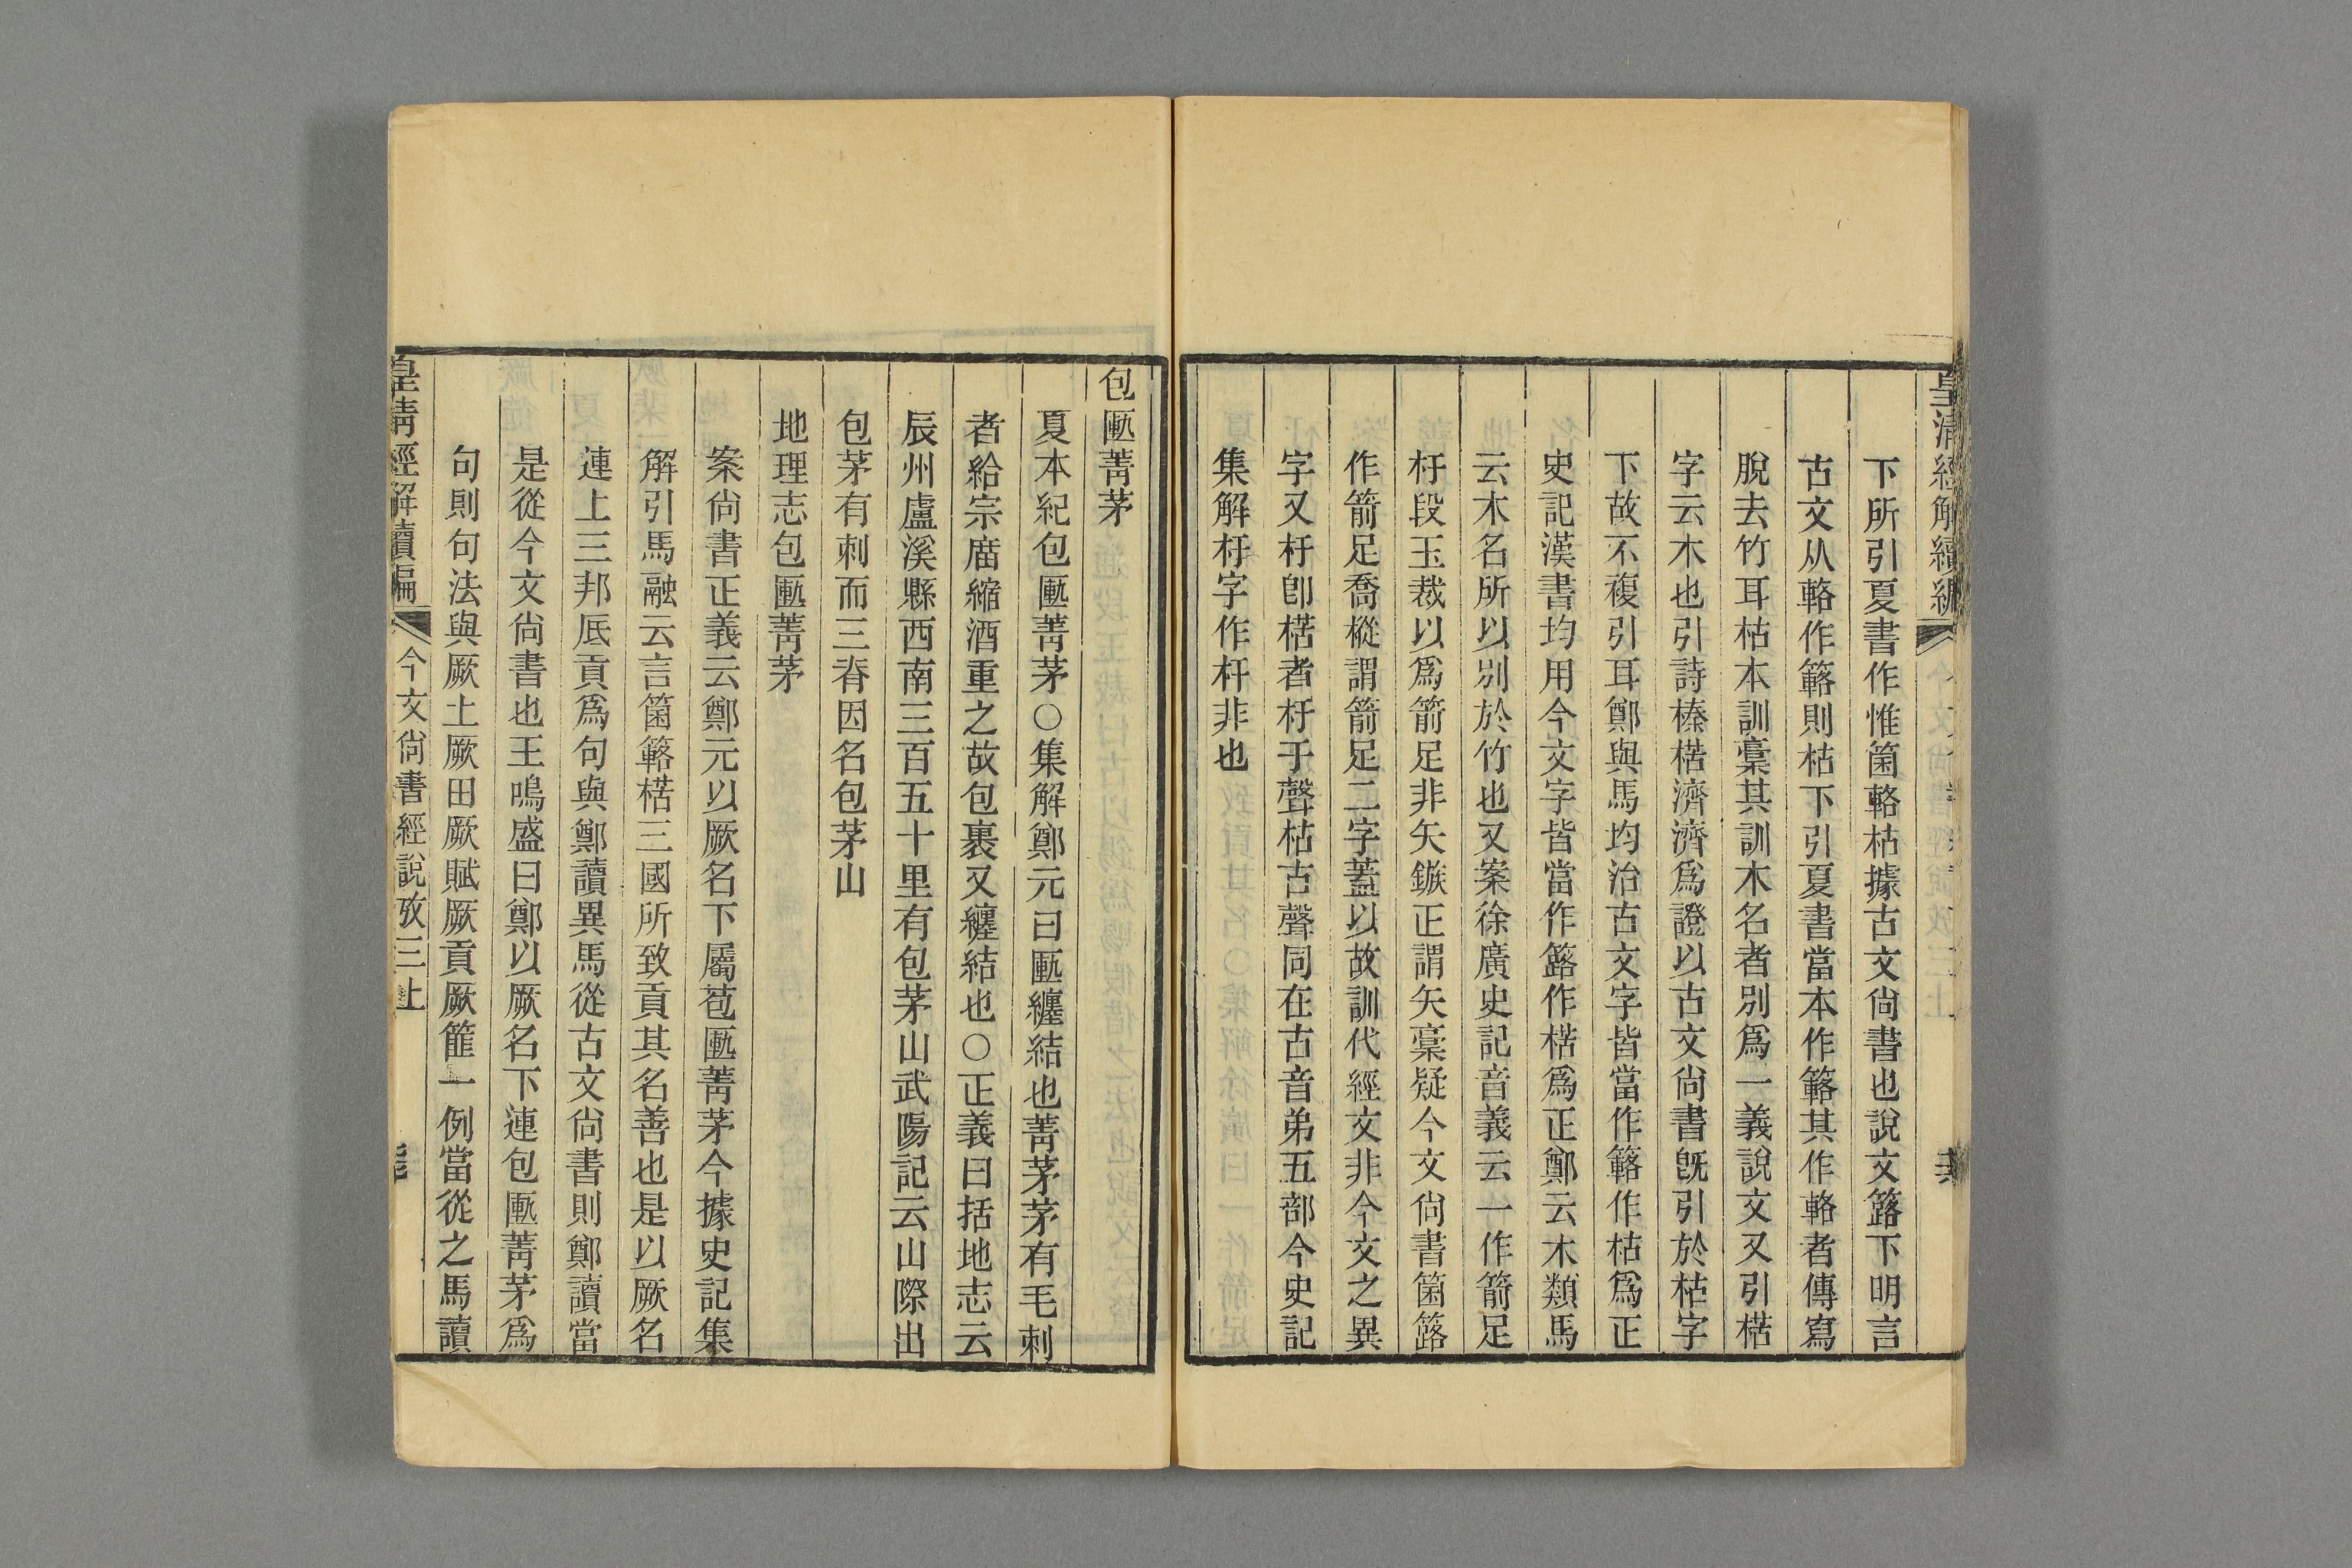 皇清經解續編
下所引夏書作惟箘輅枯據古文尙書也說文簬下明言
古文从輅作簵則枯下引夏書當本作簵其作輅者傳寫
脫去竹耳枯本訓槀其訓木名者別爲一義說文又引楛
字云木也引詩榛楛濟濟爲證以古文尙書旣引於枯字
下故不複引耳鄭與馬均治古文字皆當作簵作枯爲正
史記漢書均用今文字皆當作簬作楛爲正鄭云木類馬
云木名所以別於竹也又案徐廣史記音義云一作箭足
杅段玉裁以爲箭足非矢鏃正謂矢稾疑今文尙書箘簬
作箭足喬樅謂箭足二字蓋以故訓代經文非今文之異
字又杅卽楛者杅于聲枯古聲同在古音弟五部今史記
集解杅字作杆非也
包匭菁茅
夏本紀包匭菁茅○集解鄭元曰匭纏結也菁茅茅有毛刺
者給宗庿縮酒重之故包裹又纏結也○正義曰括地志云
辰州盧溪縣西南三百五十里有包茅山武陽記云山際出
包茅有刺而三脊因名包茅山
地理志包匭菁茅
案尙書正義云鄭元以厥名下屬苞匭菁茅今據史記集
解引馬融云言箘簵楛三國所致貢其名善也是以厥名
連上三邦厎貢爲句與鄭讀異馬從古文尙書則鄭讀當
是從今文尙書也王鳴盛曰鄭以厥名下連包匭菁茅爲
句則句法與厥土厥田厥賦厥貢厥篚一例當從之馬讀
皇淸經解續編
今文尙書經說攷三上